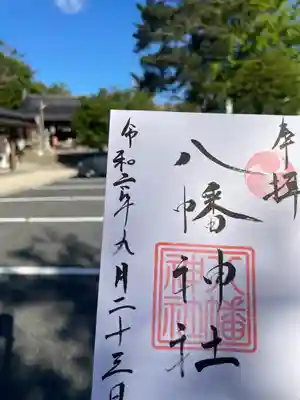 奉拝
八幡神社
八幡神社
令和二年九月二十三日